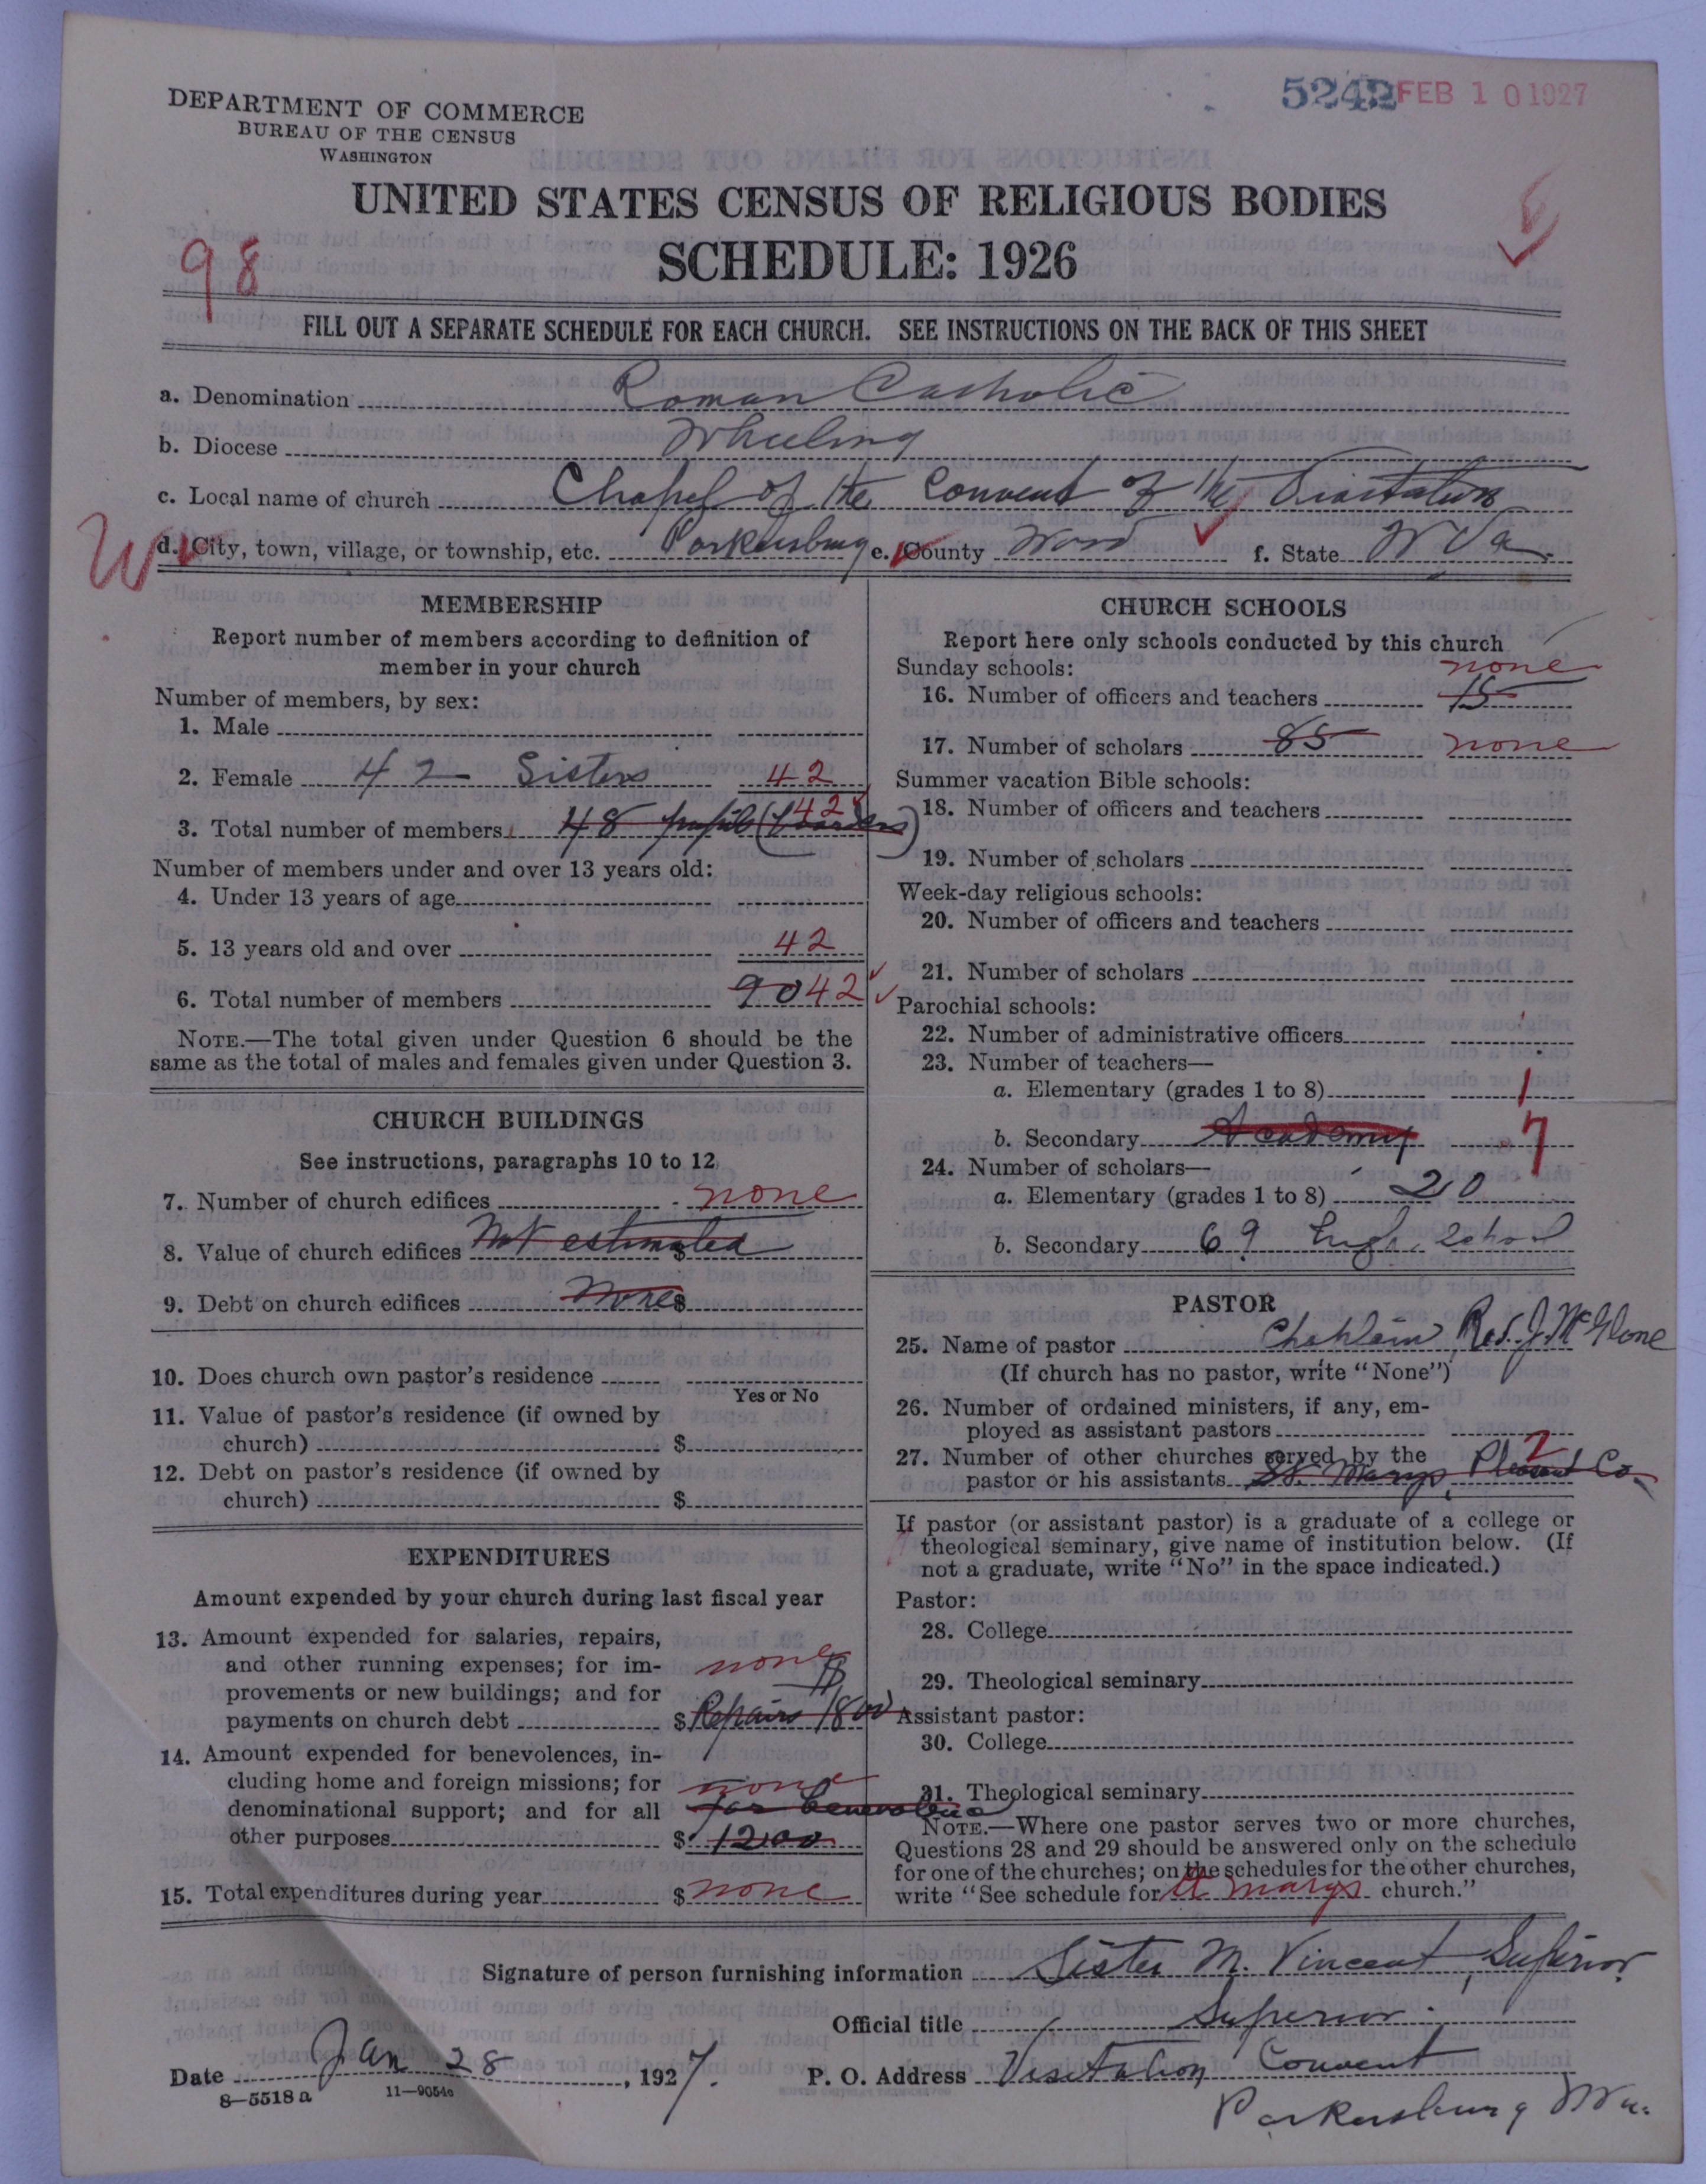 5242 FEB 10 1927
DEPARTMENT OF COMMERCE
BUREAU OF THE CENSUS
WASHINGTON
UNITED STATES CENSUS OF RELIGIOUS BODIES
SCHEDULE: 1926
98
FILL OUT A SEPARATE SCHEDULE FOR EACH CHURCH. SEE INSTRUCTIONS ON THE BACK OF THIS SHEET
a. Denomination Roman Catholic
b. Diocese Wheeling
c. Local name of church Chapel of the Convent of the Visitation
d. City, town, village, or township, etc. Parkersburg e. County Wood f. State W Va.
MEMBERSHIP
Report number of members according to definition of
member in your church
Number of members, by sex:
1. Male
2. Female 42 Sisters 42
3. Total number of members 48 pupils (boarders) 42
Number of members under and over 13 years old:
4. Under 13 years of age
5. 13 years old and over 42
6. Total number of members 90 42
NOTE.—The total given under Question 6 should be the
same as the total of males and females given under Question 3.
CHURCH BUILDINGS
See instructions, paragraphs 10 to 12
7. Number of church edifices none
8. Value of church edifices Not estimated $
9. Debt on church edifices None $
10. Does church own pastor's residence
Yes or No
11. Value of pastor's residence (if owned by
church) $
12. Debt on pastor's residence (if owned by
church) $
EXPENDITURES
Amount expended by your church during last fiscal year
13. Amount expended for salaries, repairs,
and other running expenses; for im- none
provements or new buildings; and for $
payments on church debt $ Repairs 1800
14. Amount expended for benevolences, in-
cluding home and foreign missions; for none
denominational support; and for all for benevolence
other purposes $ 12.00
15. Total expenditures during year $ none
CHURCH SCHOOLS
Report here only schools conducted by this church
Sunday schools: none
16. Number of officers and teachers 15
17. Number of scholars 85 none
Summer vacation Bible schools:
18. Number of officers and teachers
19. Number of scholars
Week-day religious schools:
20. Number of officers and teachers
21. Number of scholars
Parochial schools:
22. Number of administrative officers
23. Number of teachers—
a. Elementary (grades 1 to 8) 1
b. Secondary Academy 7
24. Number of scholars—
a. Elementary (grades 1 to 8) 20
b. Secondary 69 High School
PASTOR
25. Name of pastor Chaplain, Rev. J. McGlone
(If church has no pastor, write "None")
26. Number of ordained ministers, if any, em-
ployed as assistant pastors
27. Number of other churches served by the 2
pastor or his assistants St. Marys, Pleasant Co.
If pastor (or assistant pastor) is a graduate of a college or
theological seminary, give name of institution below. (If
not a graduate, write "No" in the space indicated.)
Pastor:
28. College
29. Theological seminary
Assistant pastor:
30. College
31. Theological seminary
NOTE.—Where one pastor serves two or more churches,
Questions 28 and 29 should be answered only on the schedule
for one of the churches; on the schedules for the other churches,
write "See schedule for St Marys church."
Signature of person furnishing information Sister M. Vincent, Superior
Official title Superior
Date Jan 28, 1927. P. O. Address Visitation Convent
8-5518 a 11-9054a
Parkersburg W Va.